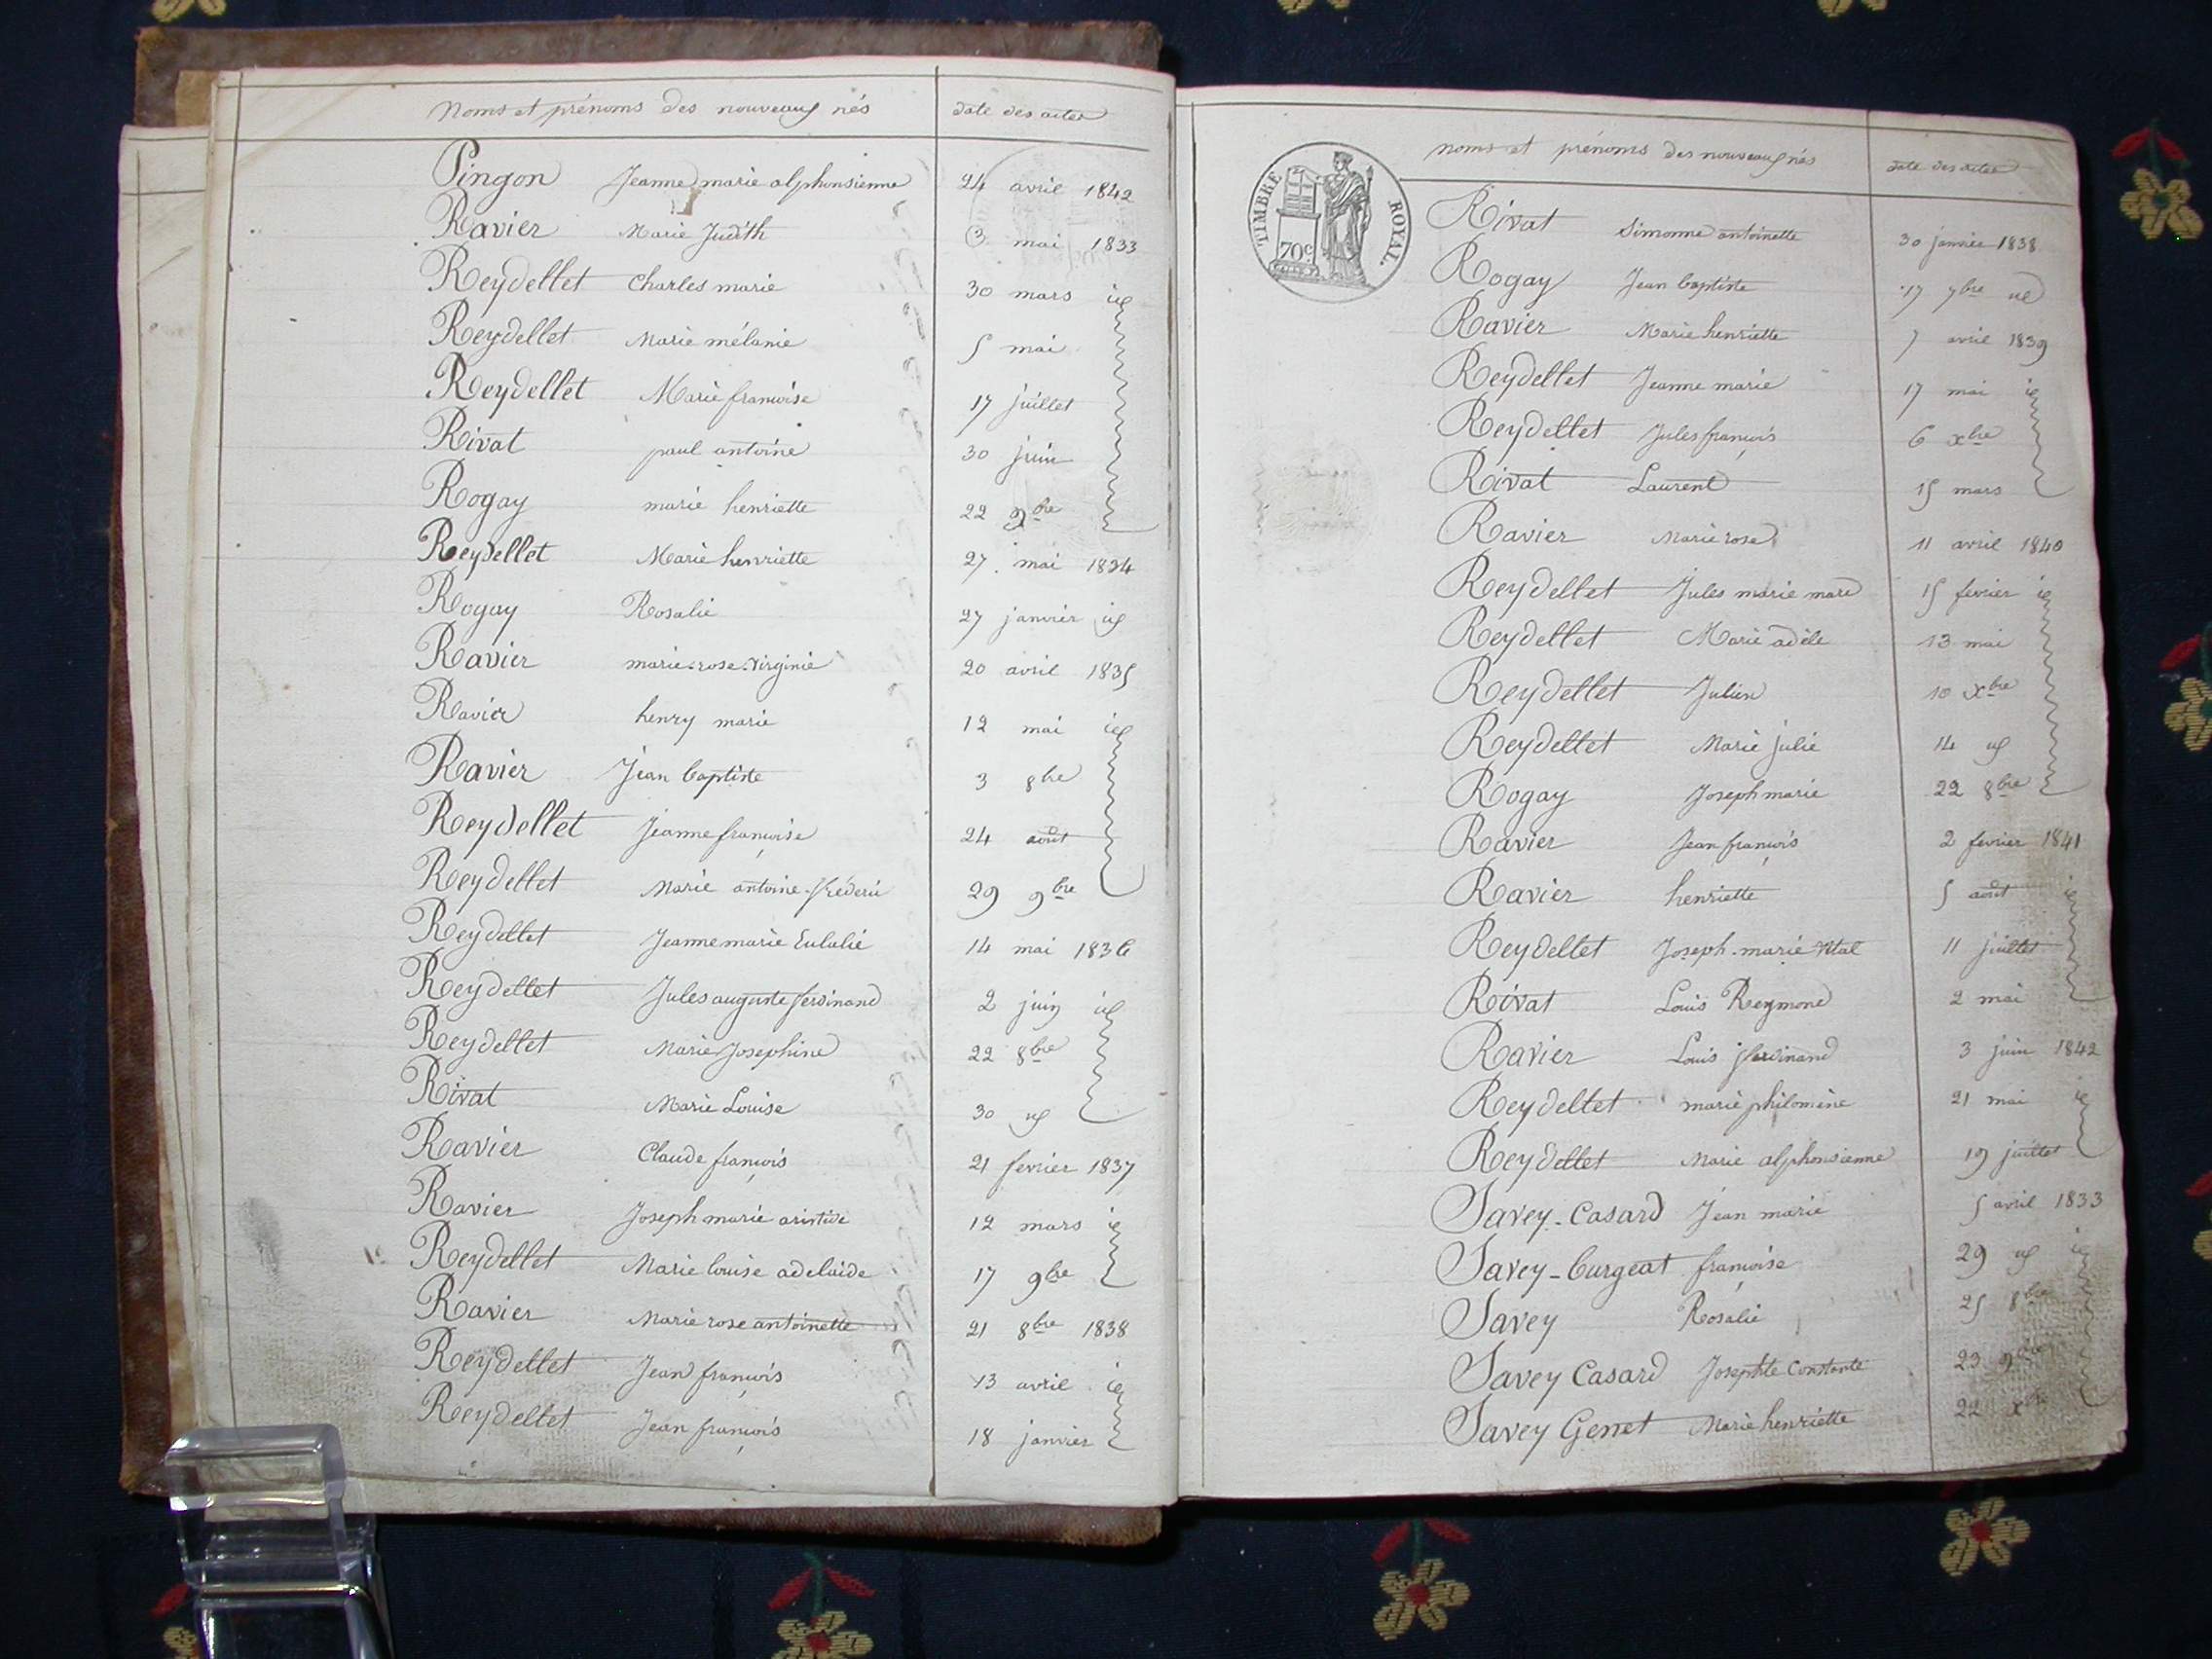 Noms et prénoms des nouveaux nés date des actes
Pingon Jeanne marie alphonsienne 24 avril 1842
Ravier Marie Judith 3 mai 1833
Reydellet Charles marie 30 mars id
Reydellet Marie mélanie 5 mai
Reydellet Marie françoise 17 juillet
Rivat paul antoine 30 juin
Rogay marie henriette 22 9bre
Reydellet Marie henriette 27 mai 1834
Rogay Rosalie 27 janvier id
Ravier marie-rose-virginie 20 avril 1835
Ravier henry marie 12 mai id
Ravier Jean baptiste 3 8bre
Reydellet Jeanne françoise 24 août
Reydellet Marie antoine fréderic 29 9bre
Reydellet Jeanne marie Eulalie 14 mai 1836
Reydellet Jules auguste ferdinand 2 juin id
Reydellet Marie Josephine 22 8bre
Rivat Marie Louise 30 id
Ravier Claude françois 21 fevrier 1837
Ravier Joseph marie aristide 12 mars id
Reydellet Marie louise adelaide 17 9bre
Ravier Marie rose antoinette 21 8bre 1838
Reydellet Jean françois 13 avril id
Reydellet Jean françois 18 janvier
TIMBRE ROYAL.
70c
noms et prénoms des nouveaux nés date des actes
Rivat Simonne antoinette 30 janvier 1838
Rogay Jean baptiste 17 7bre id
Ravier Marie henriette 7 avril 1839
Reydellet Jeanne marie 17 mai id
Reydellet Jules françois 6 xbre
Rivat Laurent 15 mars
Ravier Marie rose 11 avril 1840
Reydellet Jules marie marc 15 fevrier id
Reydellet Marie adèle 13 mai
Reydellet Julien 10 xbre
Reydellet Marie julie 14 id
Rogay Joseph marie 22 8bre
Ravier Jean françois 2 fevrier 1841
Ravier henriette 5 août id
Reydellet Joseph-marie vital 11 juillet
Rivat Louis Reymond 2 mai
Ravier Louis ferdinand 3 juin 1842
Reydellet marie philomène 21 mai id
Reydellet Marie alphonsienne 19 juillet
Savey-Casard Jean marie 5 avril 1833
Savey-burgeat françoise 29 id id
Savey Rosalie 25 8bre
Savey Casard Josephte Constante 23 9bre
Savey Genet Marie henriette 22 xbre